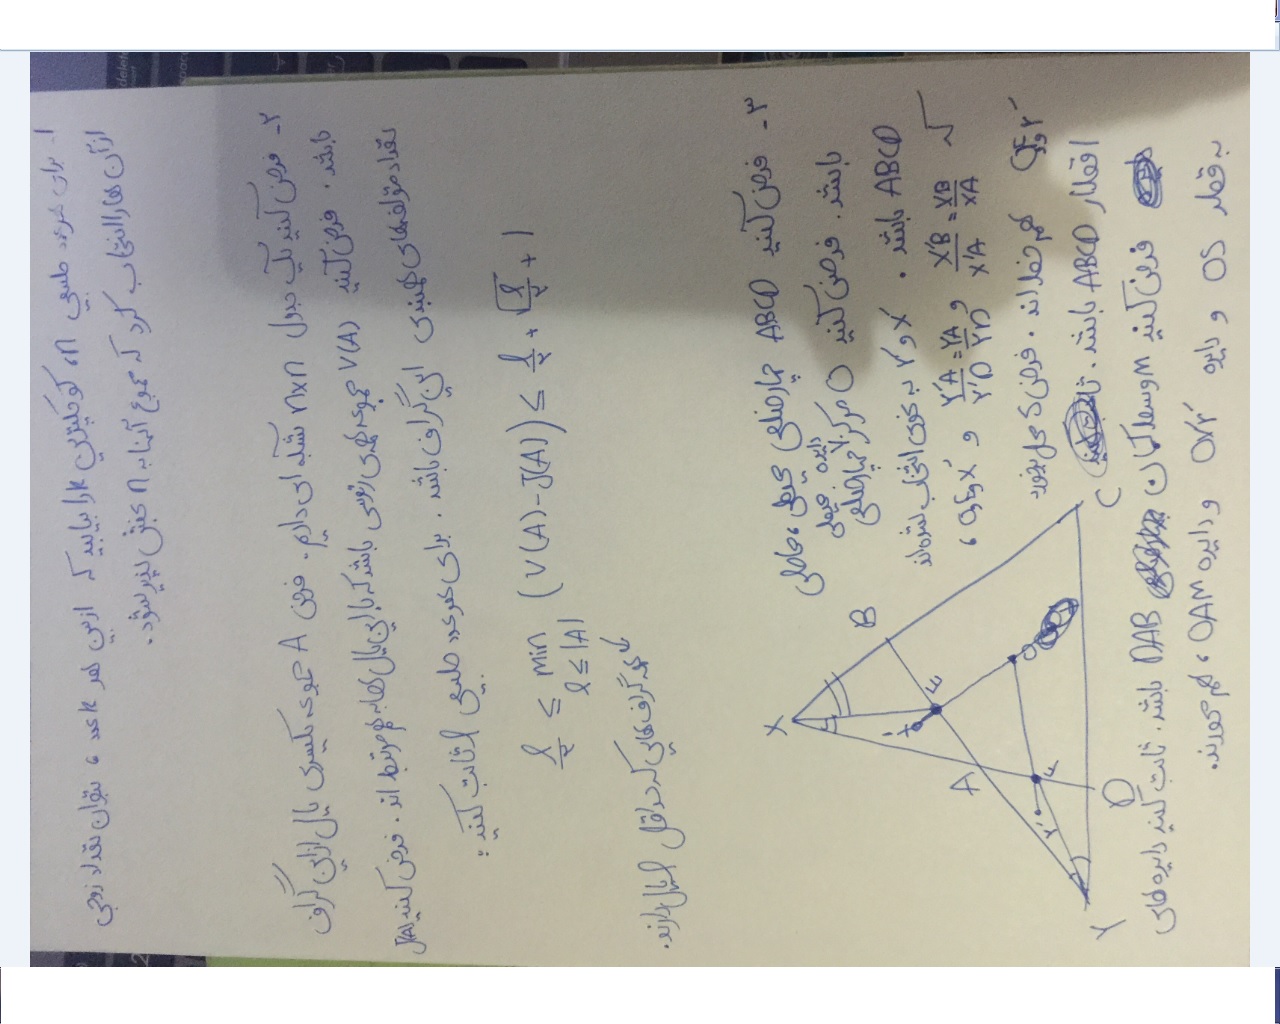 ۱- برای هر عدد طبیعی n، کوچکترین k را بیابید که از بین هر k عدد، بتوان تعداد زوجی
از آن ها را انتخاب کرد که مجموع آنها به n بخش پذیر شود.
۲- فرض کنید یک جدول n×n شبکه ای داریم. فرض A مجموعه یکسری یال از این گراف
باشد. فرض کنید V(A) مجموعه همه ی رئوسی باشد که با این یال ها به هم مرتبط اند. فرض کنید J(A)
تعداد مؤلفه های همبندی این گراف باشد. برای هر عدد طبیعی l ثابت کنید:
l/2 ≤ min (V(A) - J(A)) ≤ l/2 + √(l/2) + 1
l ≤ |A|
همه گراف هایی که حداقل l یال دارند.
۳- فرض کنید ABCD چهارضلعی محیطی، محاطی
باشد. فرض کنید O مرکز دایره محیطی چهارضلعی
ABCD باشد. X' و Y' به گونه ای انتخاب شده اند
X' و O و E، و Y'A/Y'D = YA/YD و X'B/X'A = XB/XA
Y' و O و F هم خط اند. فرض کنید S محل برخورد
اقطار ABCD باشد.
فرض کنید M وسط کمان DAB باشد. ثابت کنید دایره های
به قطر OS و دایره OX'Y' و دایره OAM، هم محورند.
X
B
E
X'
O
A
F
Y'
D
C
Y
delete